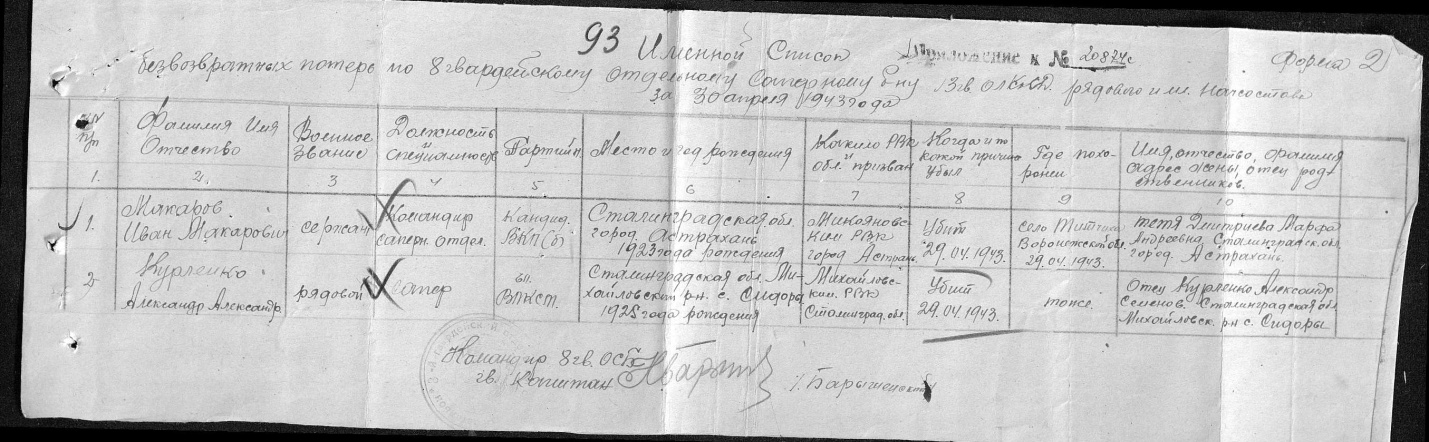 93 Именной Список
Приложение к № 20874с
Форма 2
безвозвратных потерь по 8 гвардейскому отдельному Саперному б-ну 13 гв. рядового и мл. начсостава
за 30 апреля 1943 года
№№ п/п
Фамилия Имя Отчество
Военное звание
Должность и специальность
Партийн.
Место и год рождения
Каким РВК и обл. призван
Когда и по какой причине убыл
Где похоронен
Имя, отчество, фамилия адрес жены, отец родственников.
1. 2. 3 4 5. 6 7 8 9 10
1. Макаров Иван Макарович
сержан
Командир саперн. отдел.
Кандид. ВКП(б)
Сталинградская обл. город Астрахань 1923 года рождения
Микояновским РВК город Астрань
Убит 29.04.1943.
село Воронежск обл. 29.04.1943.
тетя Дмитриева Марфа Андреевна Сталинградск. обл. город. Астрахань.
2 Курленко Александр Александр.
рядовой
сапер
чл. ВЛКСМ.
Сталинградская обл. Михайловский р-н. с. Сидоры 1925 года рождения
Михайловским. РВК Сталинград. обл.
Убит 29.04.1943.
тоже.
Отец Курленко Александр Семенов. Сталинградская обл Михайловск. р-н с. Сидоры
Командир 8 гв. ОСБ
гв. Капитан